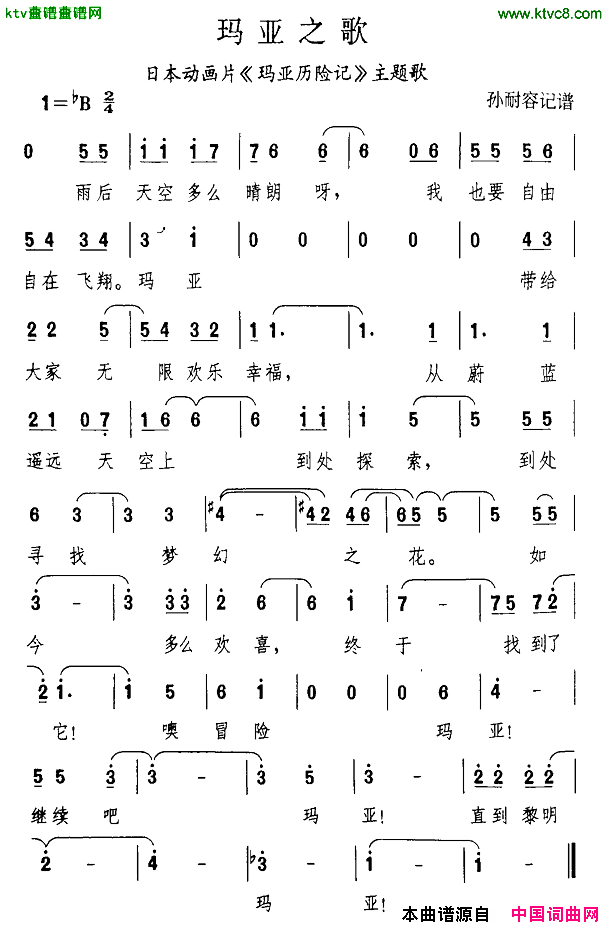 ktv查谱查谱网
www.ktvc8.com
玛亚之歌
日本动画片《玛亚历险记》主题歌
1=♭B 2/4
孙耐容记谱
0 55 | i̇i̇ i̇7 | 76 6 | 6 06 | 55 56 |
雨后 天空多么 晴朗 呀， 我 也要自由
54 34 | 3 i̇ | 0 0 | 0 0 | 0 43 |
自在 飞翔。玛 亚 带给
22 5 | 54 32 | 11. | 1. 1 | 1. 1 |
大家 无 限欢乐 幸福， 从 蔚 蓝
21 07̣ | 166 6 | 6 i̇i̇ | i̇ 5 | 5 55 |
遥远 天 空上 到处 探 索， 到处
6 3 | 3 3 | #4 - | #42 46 | 65 5 | 5 55 |
寻 找 梦 幻 之 花。 如
3̇ - | 3̇ 3̇3̇ | 2̇ 6 | 6 i̇ | 7 - | 75 72̇ |
今 多么 欢 喜， 终 于 找 到了
2̇i̇. | i̇ 5 | 6 i̇ | 0 0 | 0 6 | 4̇ - |
它！ 噢 冒 险 玛 亚！
55 3̇ | 3̇ - | 3̇ 5̇ | 3̇ - | 2̇2̇ 2̇2̇ |
继续 吧 玛 亚！ 直到 黎明
2̇ - | 4̇ - | ♭3̇ - | i̇ - | i̇ - ‖
玛 亚！
本曲谱源自 中国词曲网